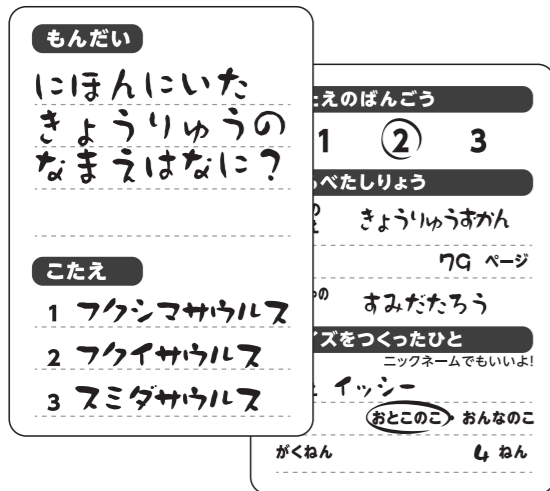 もんだい
にほんにいた
きょうりゅうの
なまえはなに?
こたえ
1 フクシマサウルス
2 フクイサウルス
3 スミダサウルス
えのばんごう
1 2 3
べたしりょう
きょうりゅうずかん
79 ページ
の すみだたろう
イズをつくったひと
ニックネームでもいいよ!
イッシー
おとこのこ おんなのこ
がくねん 4 ねん